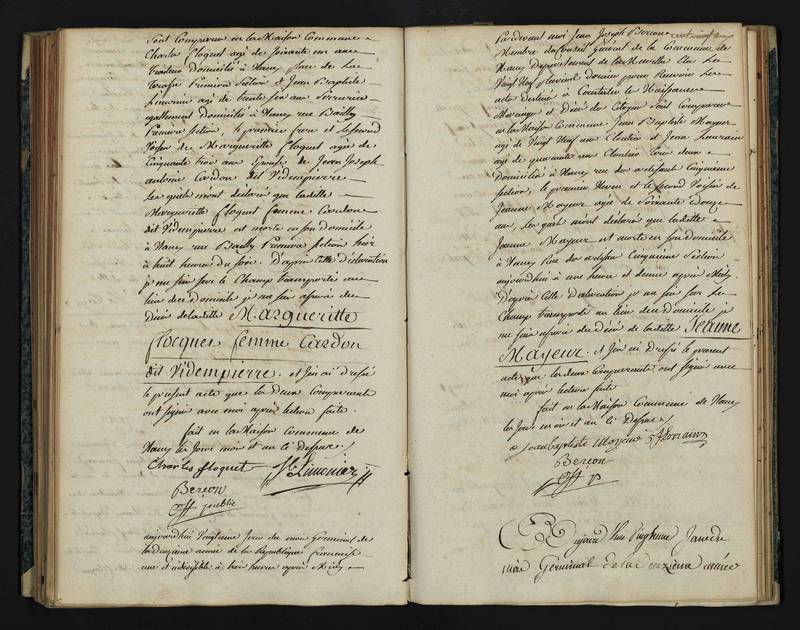 Sont Comparus en la Maison Commune
Charles floquet agé de soixante un ans
traiteur domicilié à Nancy place de
Premiere Section et Jean Baptiste
Limonier agé de trente six ans Serrurier
egallement domicilié à Nancy rue Bailly
Premiere section, le premier frere et le second
Voisin de Marguerite floquet agée de
Cinquante trois ans Epouse de Jean Joseph
antoine Cardon dit Vidempierre
Lesquels m'ont déclaré que ladite
Marguerite floquet femme Cardon
dit Vidempierre est morte en son domicile
à Nancy rue Bailly Premiere section hier
à huit heures du soir. D'après cette déclaration
je me suis sur le Champ transporté au
lieu du Domicile je me suis assuré du
Décès de ladite Marguerite
flocquet femme Cardon
dit Vidempierre. et j'en ai dressé
le présent acte que les deux Comparants
ont signé avec moi après lecture faite.
fait en la Maison Commune de
Nancy les Jour mois et an ci dessus
Charles floquet Limonier
Bereon
off public
aujourd'hui Vingtieme jour du mois Germinal de
la douzieme année de la République francaise
une et indivisible à trois heures après Midy
Pardevant moi Jean Joseph Bereon
Membre du Conseil Général de la Commune de
Nancy departement de la Meurthe Elu Le
Vingt Neuf pluviose dernier pour Recevoir Les
actes destinés à Constater les Naissances
Mariages et Décès des Citoyens Sont Comparus
en la Maison Commune Jean Baptiste Mayeur
agé de Vingt Neuf ans Cloutier et Jean Lorrain
agé de quarante ans Cloutier tous deux
Domiciliés à Nancy rue des artisans Cinquieme
section, le premier Neveu et le second Voisin de
Jeanne Mayeur agée de Soixante Douze
ans, Lesquels m'ont déclaré que ladite
Jeanne Mayeur est morte en son domicile
à Nancy Rue des artisans Cinquieme Section
aujourd'hui à une heure et demie après Midy
D'après Cette Déclaration je me suis sur Le
Champ transporté au lieu du domicile je
me suis assuré du Décès de ladite Jeanne
Mayeur. et J'en ai dressé le present
acte que les deux Comparants ont signé avec
moi après lecture faite
fait en la Maison Commune de Nancy
les Jour mois et an ci dessus
Jean baptiste Mayeur J Lorrain
Bereon
off p
aujourd'hui Vingtieme Jour du
mois Germinal de la année